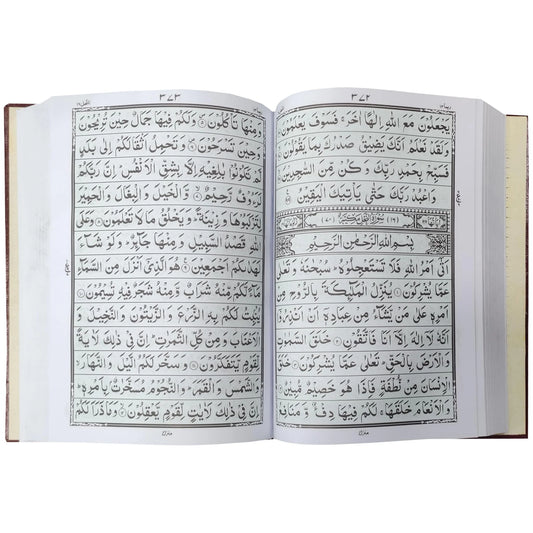 ٣٧٢
يَجْعَلُوْنَ مَعَ اللّٰهِ اِلٰهًا اٰخَرَ ۚ فَسَوْفَ يَعْلَمُوْنَ
وَ لَقَدْ نَعْلَمُ اَنَّكَ يَضِيْقُ صَدْرُكَ بِمَا يَقُوْلُوْنَ
فَسَبِّحْ بِحَمْدِ رَبِّكَ وَ كُنْ مِّنَ السّٰجِدِيْنَ
وَ اعْبُدْ رَبَّكَ حَتّٰى يَاْتِيَكَ الْيَقِيْنُ
(١٦) سُوْرَةُ النَّحْلِ مَكِّيَّةٌ (٧٠)
بِسْمِ اللّٰهِ الرَّحْمٰنِ الرَّحِيْمِ
اَتٰۤى اَمْرُ اللّٰهِ فَلَا تَسْتَعْجِلُوْهُ ؕ سُبْحٰنَهٗ وَ تَعٰلٰى
عَمَّا يُشْرِكُوْنَ يُنَزِّلُ الْمَلٰٓئِكَةَ بِالرُّوْحِ مِنْ
اَمْرِهٖ عَلٰى مَنْ يَّشَآءُ مِنْ عِبَادِهٖۤ اَنْ اَنْذِرُوْۤا
اَنَّهٗ لَاۤ اِلٰهَ اِلَّاۤ اَنَا فَاتَّقُوْنِ خَلَقَ السَّمٰوٰتِ
وَ الْاَرْضَ بِالْحَقِّ ؕ تَعٰلٰى عَمَّا يُشْرِكُوْنَ خَلَقَ
الْاِنْسَانَ مِنْ نُّطْفَةٍ فَاِذَا هُوَ خَصِيْمٌ مُّبِيْنٌ
وَ الْاَنْعَامَ خَلَقَهَا ۚ لَكُمْ فِيْهَا دِفْءٌ وَّ مَنَافِعُ
٣٧٣
وَ مِنْهَا تَاْكُلُوْنَ وَ لَكُمْ فِيْهَا جَمَالٌ حِيْنَ تُرِيْحُوْنَ
وَ حِيْنَ تَسْرَحُوْنَ وَ تَحْمِلُ اَثْقَالَكُمْ اِلٰى بَلَدٍ
لَّمْ تَكُوْنُوْا بٰلِغِيْهِ اِلَّا بِشِقِّ الْاَنْفُسِ ؕ اِنَّ رَبَّكُمْ
لَرَءُوْفٌ رَّحِيْمٌ وَّ الْخَيْلَ وَ الْبِغَالَ وَ الْحَمِيْرَ
لِتَرْكَبُوْهَا وَ زِيْنَةً ؕ وَ يَخْلُقُ مَا لَا تَعْلَمُوْنَ وَ عَلَى
اللّٰهِ قَصْدُ السَّبِيْلِ وَ مِنْهَا جَآئِرٌ ؕ وَ لَوْ شَآءَ
لَهَدٰىكُمْ اَجْمَعِيْنَ هُوَ الَّذِيْۤ اَنْزَلَ مِنَ السَّمَآءِ
مَآءً لَّكُمْ مِّنْهُ شَرَابٌ وَّ مِنْهُ شَجَرٌ فِيْهِ تُسِيْمُوْنَ
يُنْۢبِتُ لَكُمْ بِهِ الزَّرْعَ وَ الزَّيْتُوْنَ وَ النَّخِيْلَ وَ
الْاَعْنَابَ وَ مِنْ كُلِّ الثَّمَرٰتِ ؕ اِنَّ فِيْ ذٰلِكَ لَاٰيَةً
لِّقَوْمٍ يَّتَفَكَّرُوْنَ وَ سَخَّرَ لَكُمُ الَّيْلَ وَ النَّهَارَ ۙ
وَ الشَّمْسَ وَ الْقَمَرَ ؕ وَ النُّجُوْمُ مُسَخَّرٰتٌۢ بِاَمْرِهٖ ؕ
اِنَّ فِيْ ذٰلِكَ لَاٰيٰتٍ لِّقَوْمٍ يَّعْقِلُوْنَ وَ مَا ذَرَاَ لَكُمْ